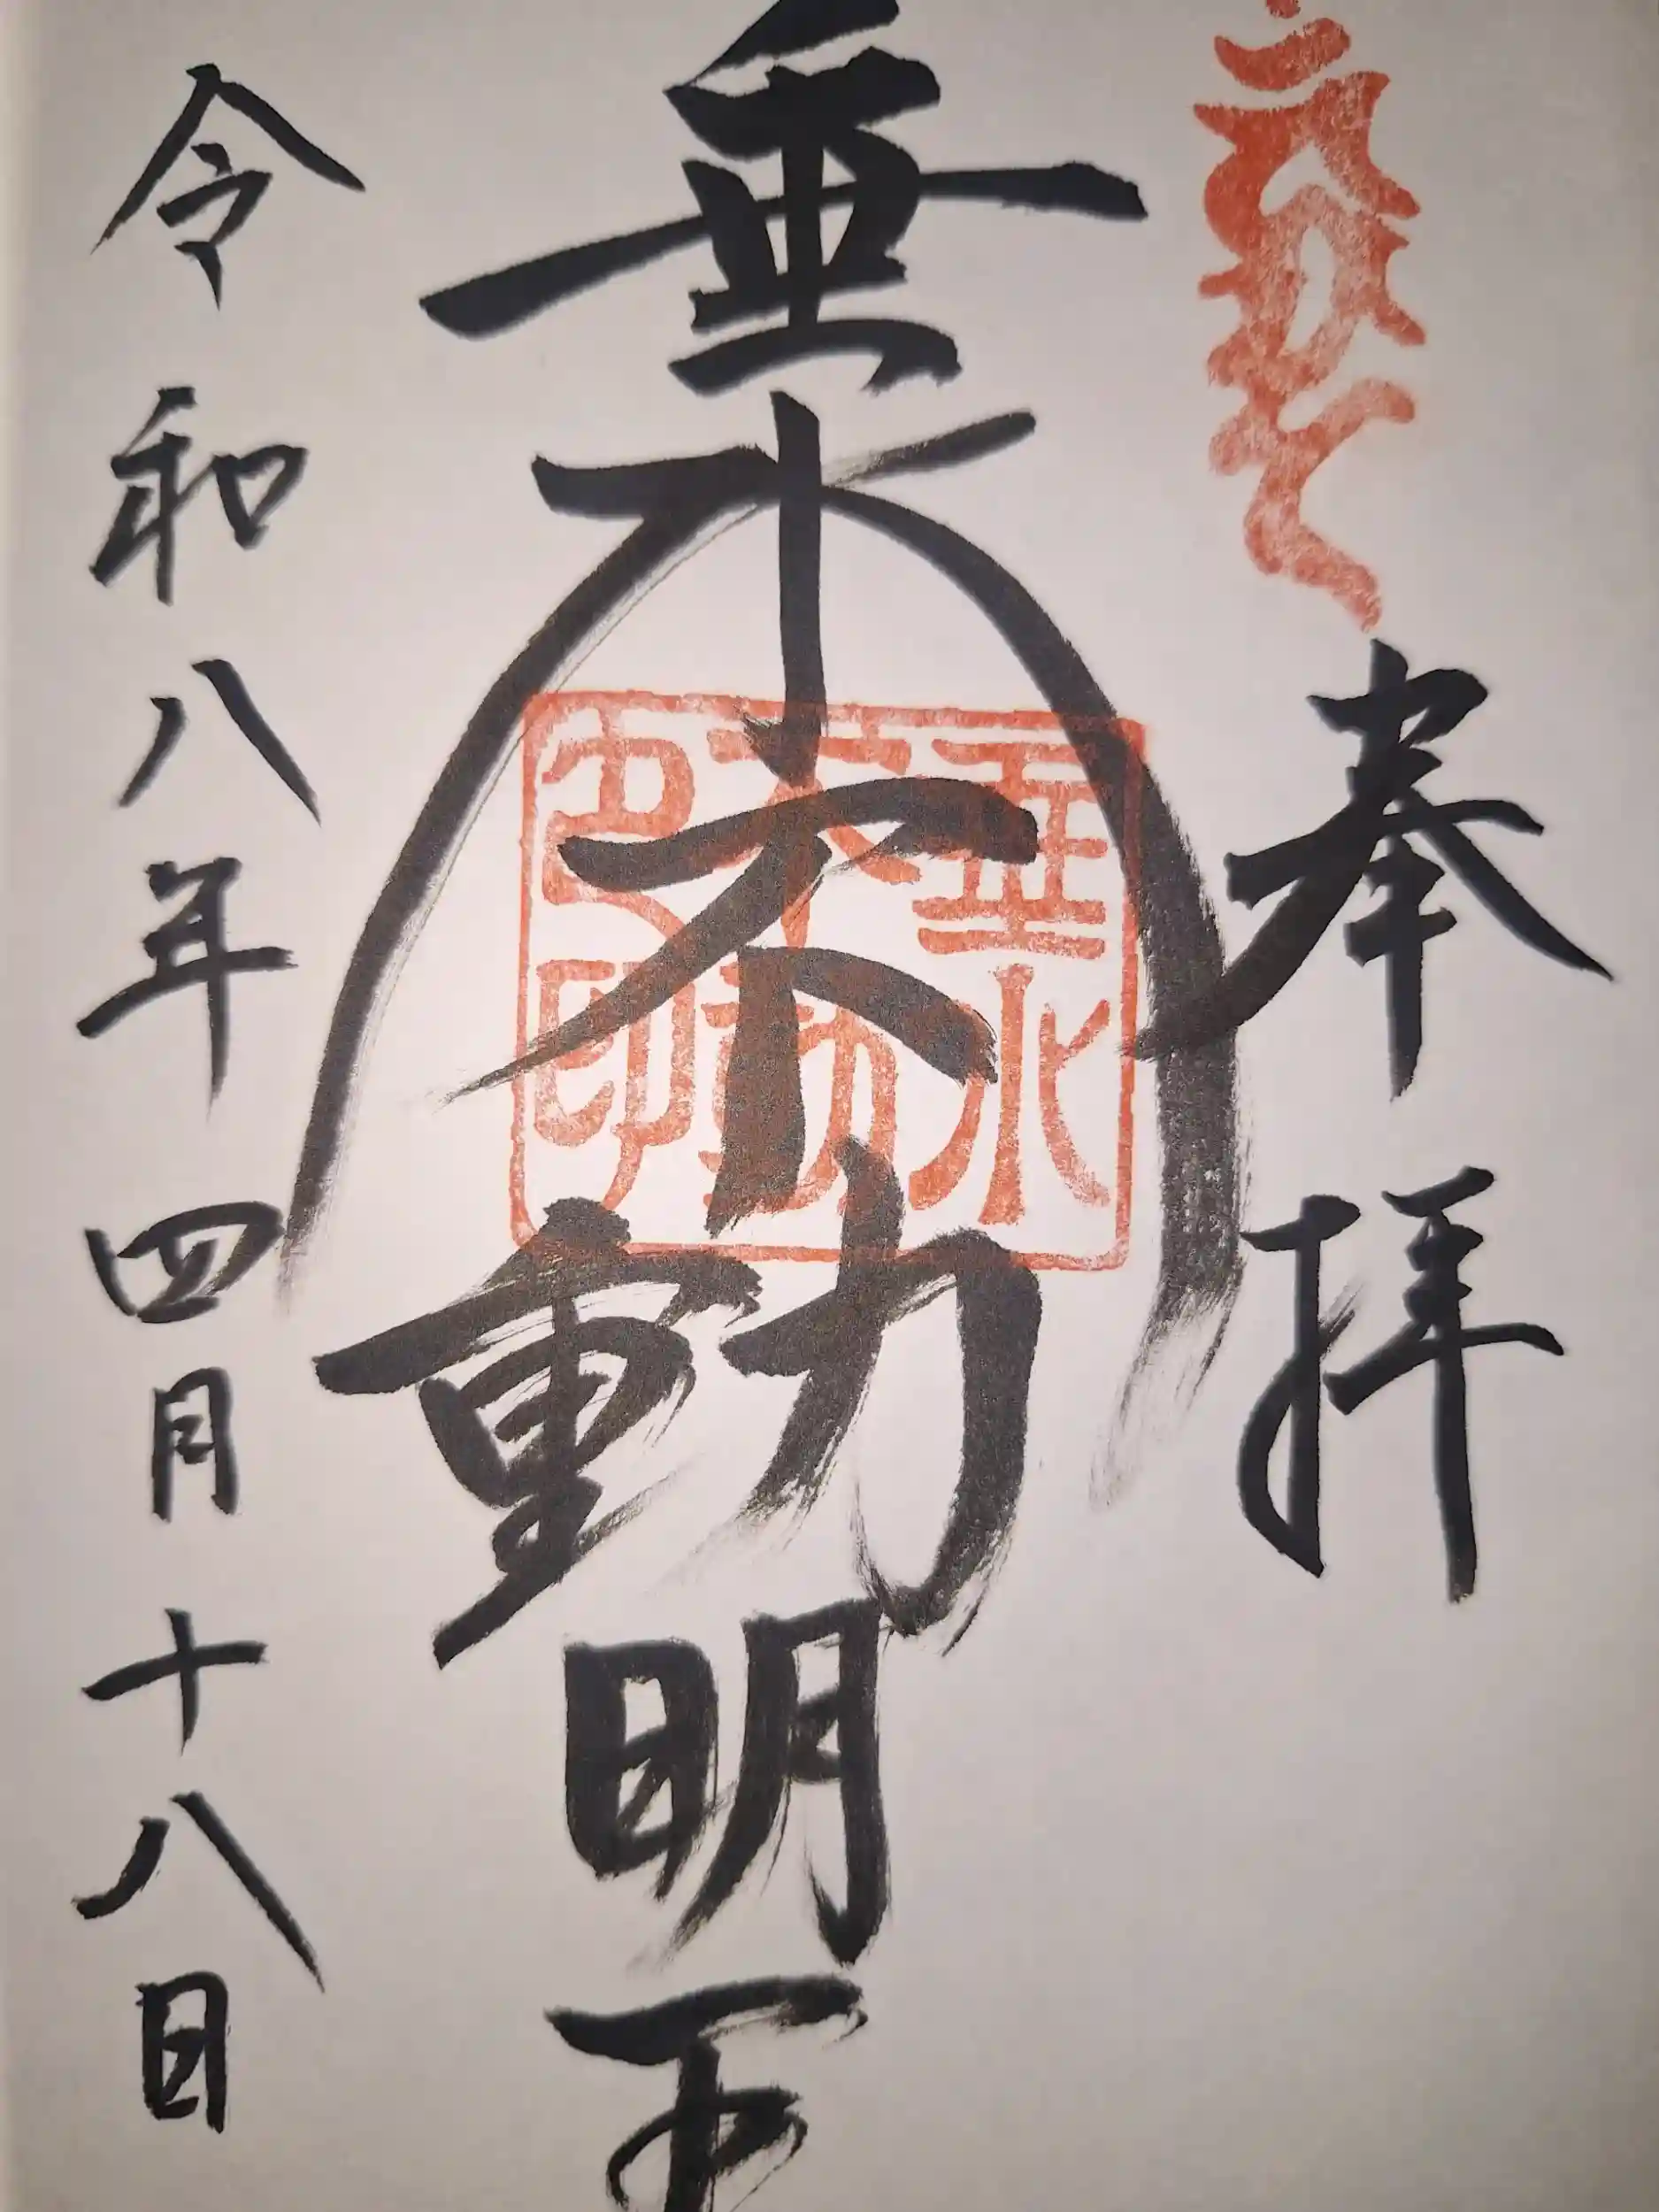 奉拝
垂水不動明王
垂水
不動
印
令和八年四月十八日